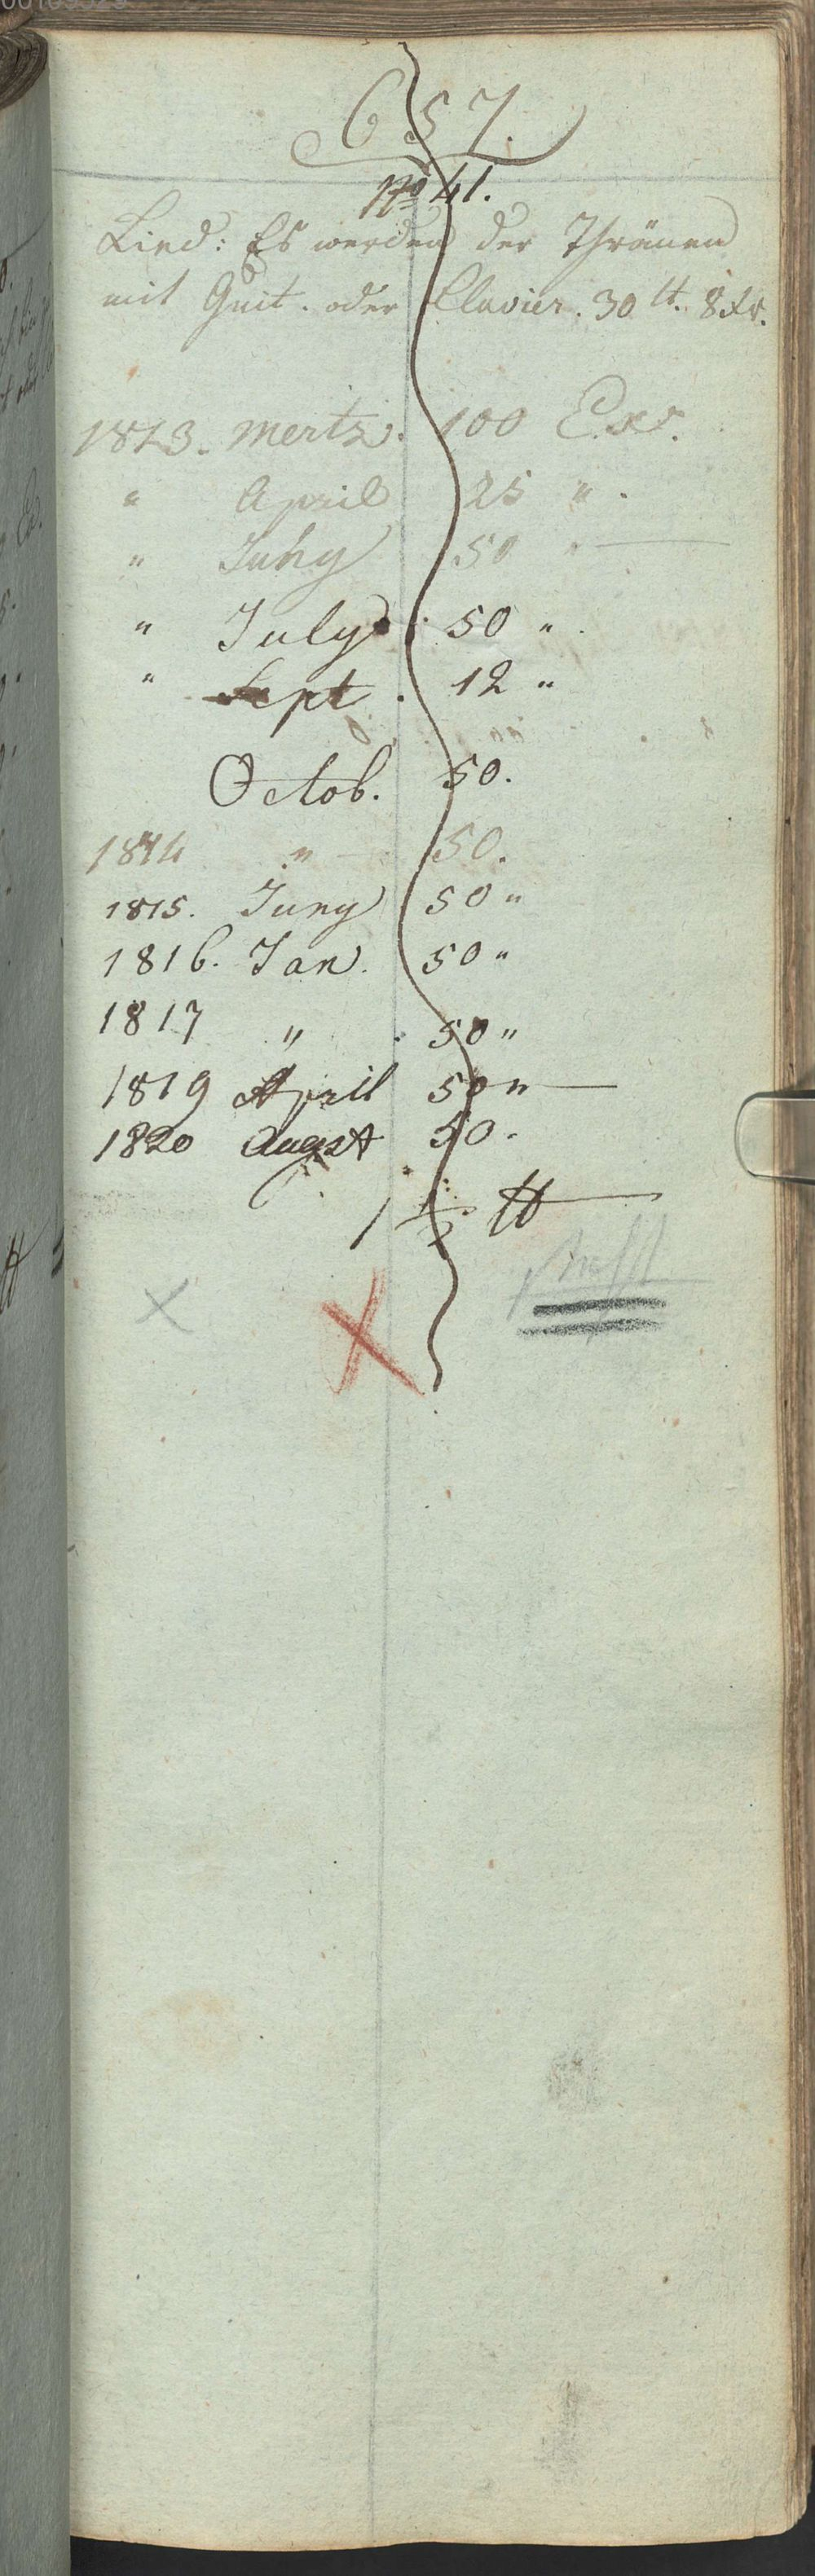 657.
No 41.
Lied: Es werden der Thränen
mit Guit. oder Clavier. 30 lt. 8 Xr.
1813. Mertz. 100 Ex.
" April 25 "
" Juny 50 "
" July 50 "
" Sept. 12 "
Octob. 50.
1814 " 50.
1815. Juny 50 "
1816. Jan. 50 "
1817 " 50 "
1819 April 50 "
1820 Augst 50.
1 1/2 ℔